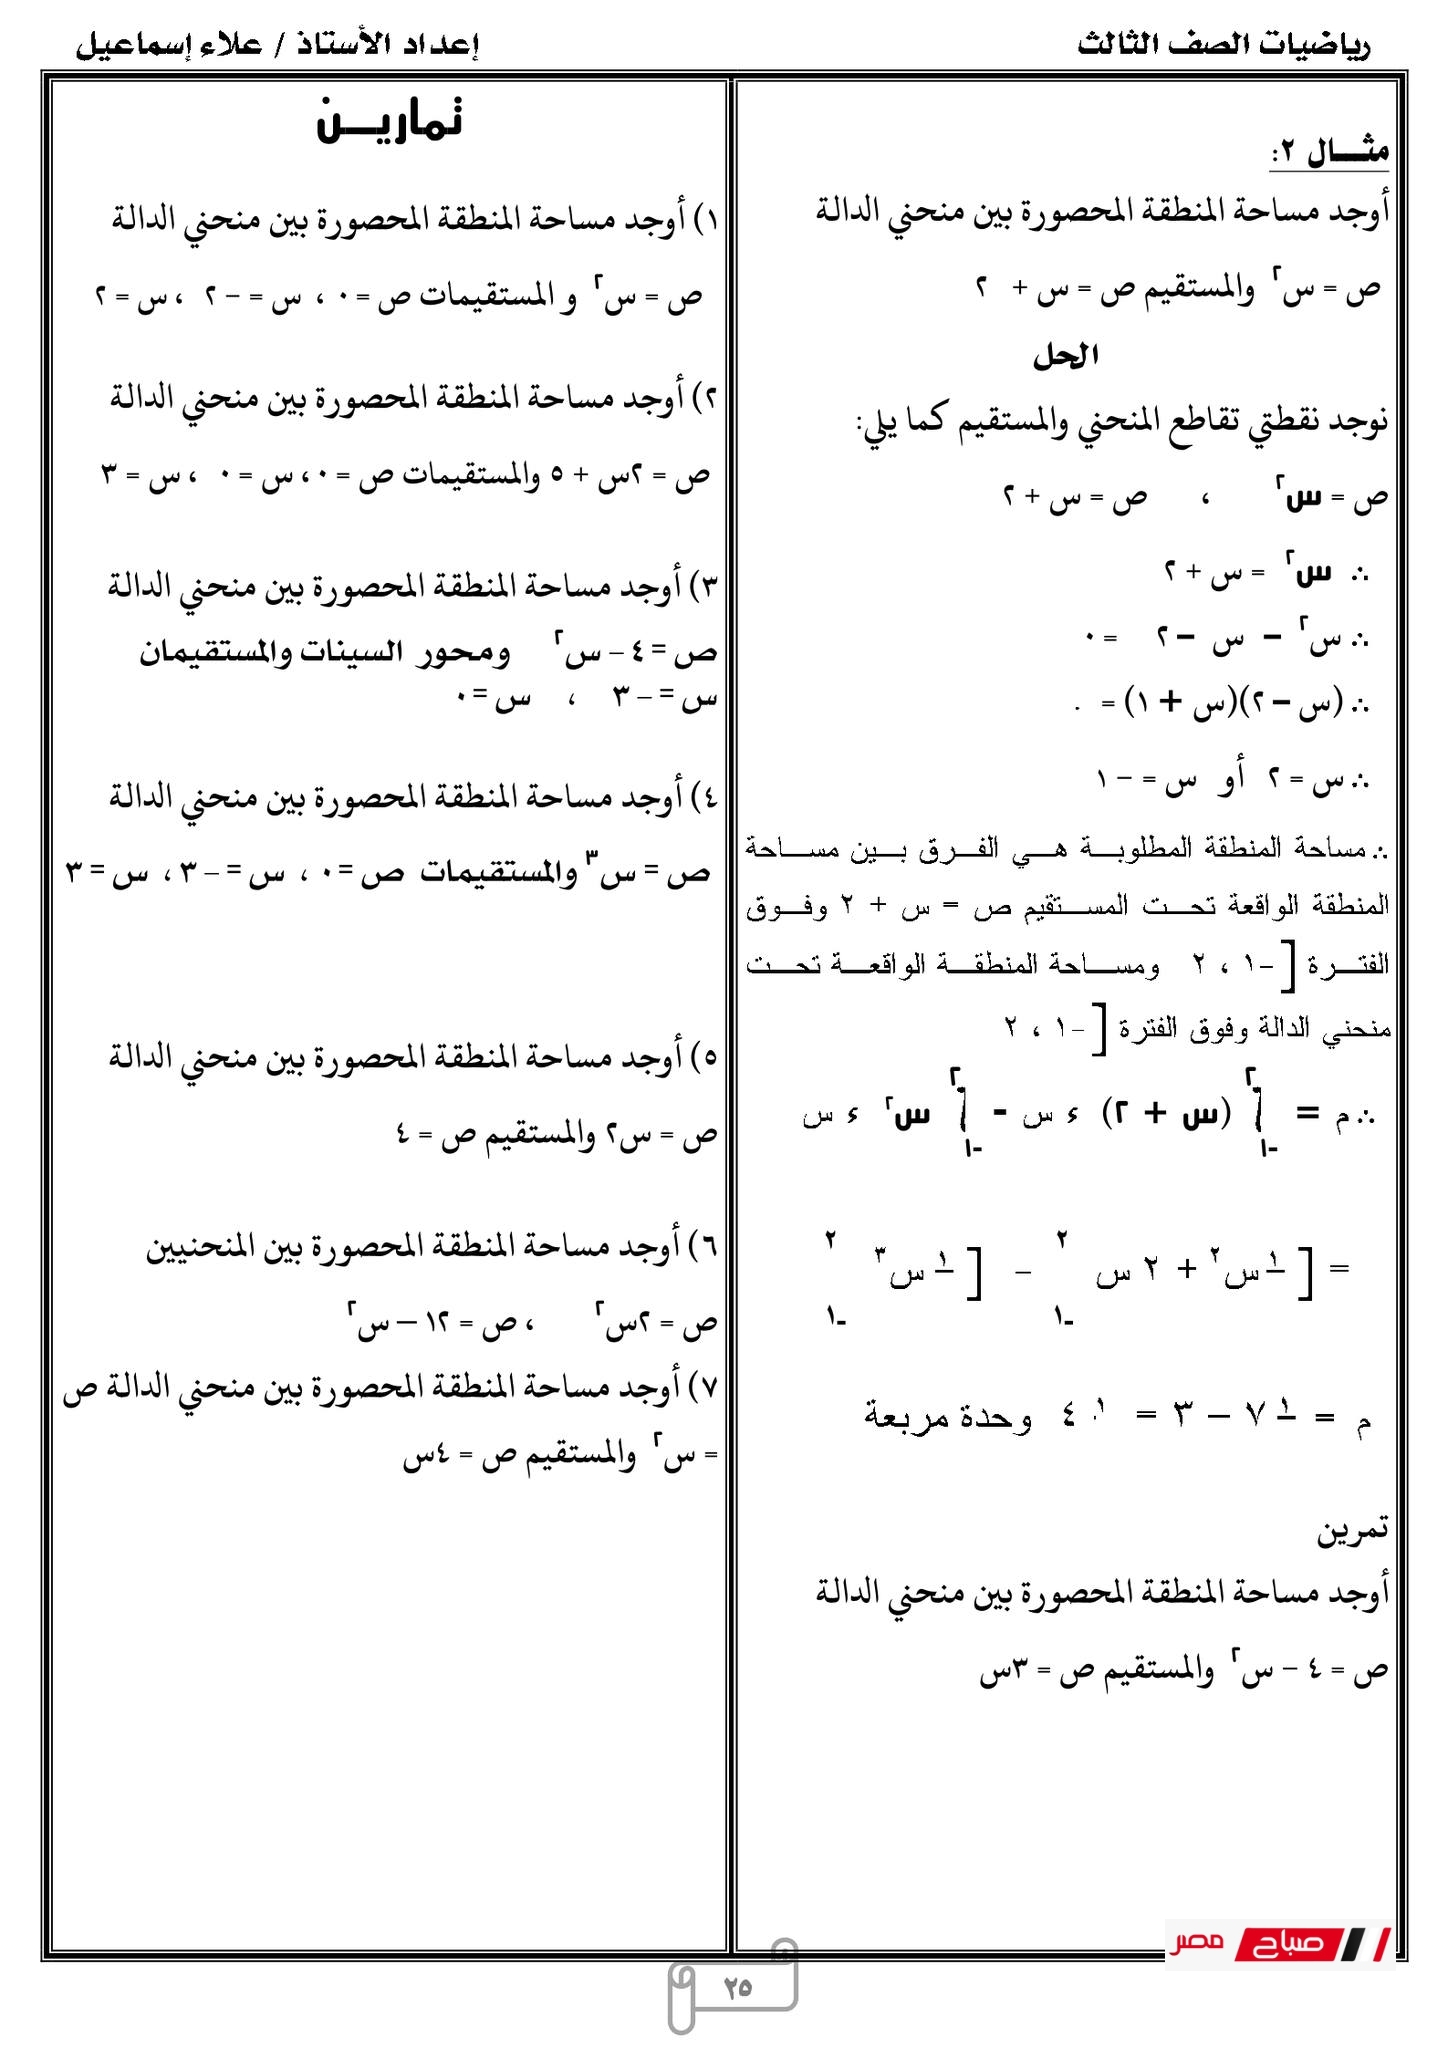 رياضيات الصف الثالث
إعداد الأستاذ / علاء إسماعيل
مثـــال ٢:
أوجد مساحة المنطقة المحصورة بين منحني الدالة
ص = س٢ والمستقيم ص = س + ٢
الحل
نوجد نقطتي تقاطع المنحني والمستقيم كما يلي:
ص = س٢ ، ص = س + ٢
∴ س٢ = س + ٢
∴ س٢ – س – ٢ = ٠
∴ (س – ٢)(س + ١) = ٠
∴ س = ٢ أو س = – ١
∴ مساحة المنطقة المطلوبة هي الفرق بين مساحة
المنطقة الواقعة تحت المستقيم ص = س + ٢ وفوق
الفترة [ -١ ، ٢ ومساحة المنطقة الواقعة تحت
منحني الدالة وفوق الفترة [ -١ ، ٢
∴ م = ∫ (س + ٢) ء س - ∫ س٢ ء س
٢ ٢
-١ -١
= [ ١ س٢ + ٢ س – [ ١ س٣
٢ ٢
-١ -١
م = ١ ٧ – ٣ = ١ ٤ وحدة مربعة
تمرين
أوجد مساحة المنطقة المحصورة بين منحني الدالة
ص = ٤ – س٢ والمستقيم ص = ٣س
تمارين
١) أوجد مساحة المنطقة المحصورة بين منحني الدالة
ص = س٢ و المستقيمات ص = ٠ ، س = – ٢ ، س = ٢
٢) أوجد مساحة المنطقة المحصورة بين منحني الدالة
ص = ٢س + ٥ والمستقيمات ص = ٠ ، س = ٠ ، س = ٣
٣) أوجد مساحة المنطقة المحصورة بين منحني الدالة
ص = ٤ – س٢ ومحور السينات والمستقيمان
س = – ٣ ، س = ٠
٤) أوجد مساحة المنطقة المحصورة بين منحني الدالة
ص = س٣ والمستقيمات ص = ٠ ، س = – ٣ ، س = ٣
٥) أوجد مساحة المنطقة المحصورة بين منحني الدالة
ص = س٢ والمستقيم ص = ٤
٦) أوجد مساحة المنطقة المحصورة بين المنحنيين
ص = ٢س٢ ، ص = ١٢ – س٢
٧) أوجد مساحة المنطقة المحصورة بين منحني الدالة ص
= س٢ والمستقيم ص = ٤س
صباح مصر
٢٥